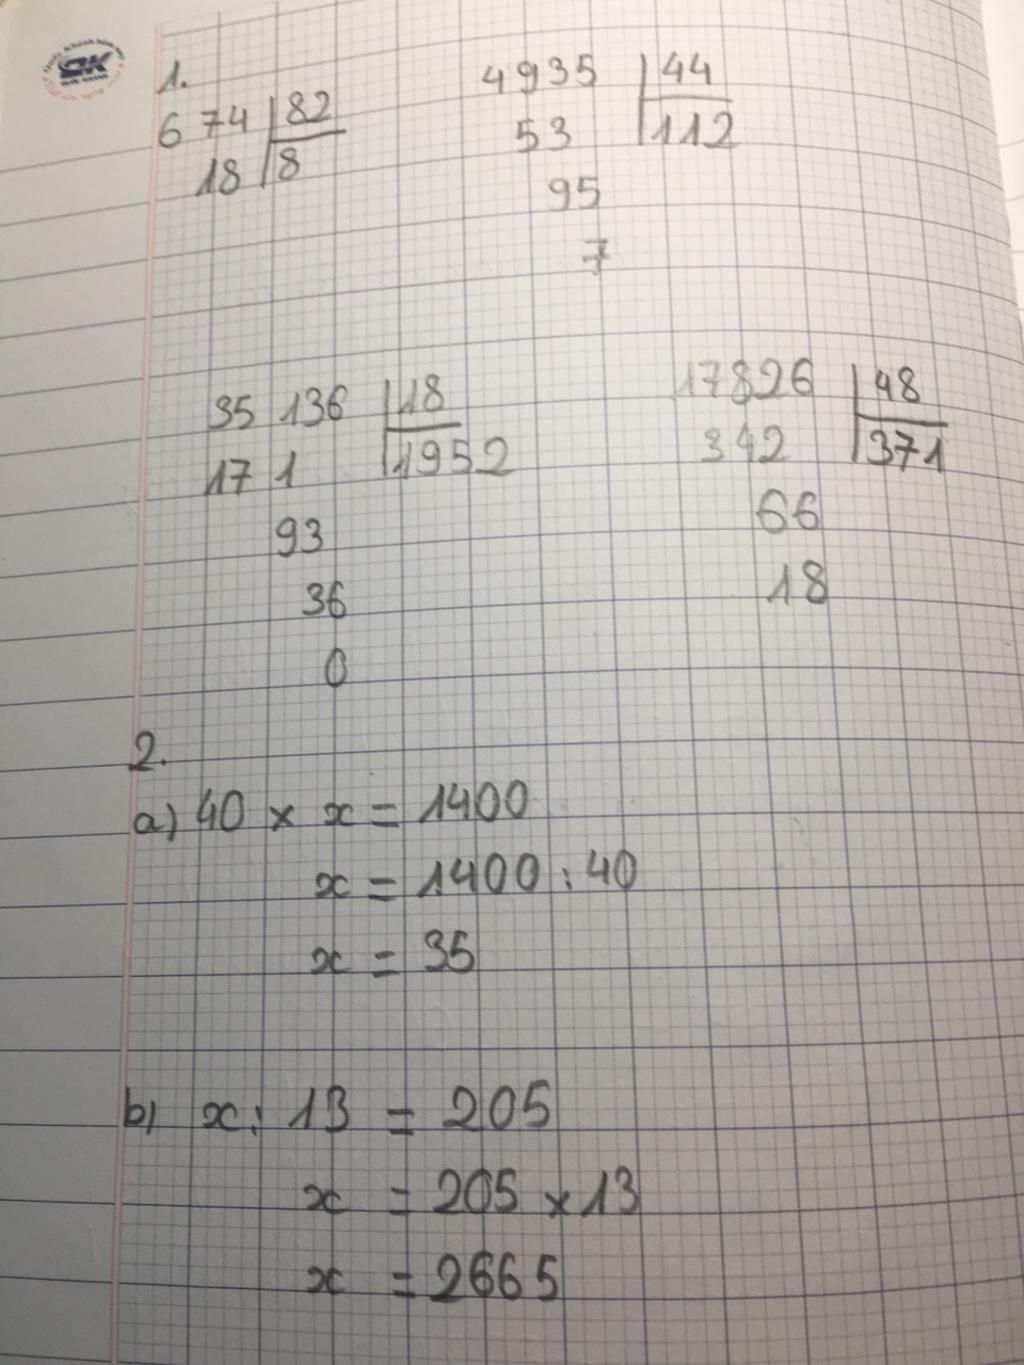 1.
674 82
18 8
4935 44
53 112
95
7
35 136 18
17 1 1952
93
36
0
17826 48
342 371
66
18
2.
a) 40 × x = 1400
x = 1400 : 40
x = 35
b) x : 13 = 205
x = 205 × 13
x = 2665